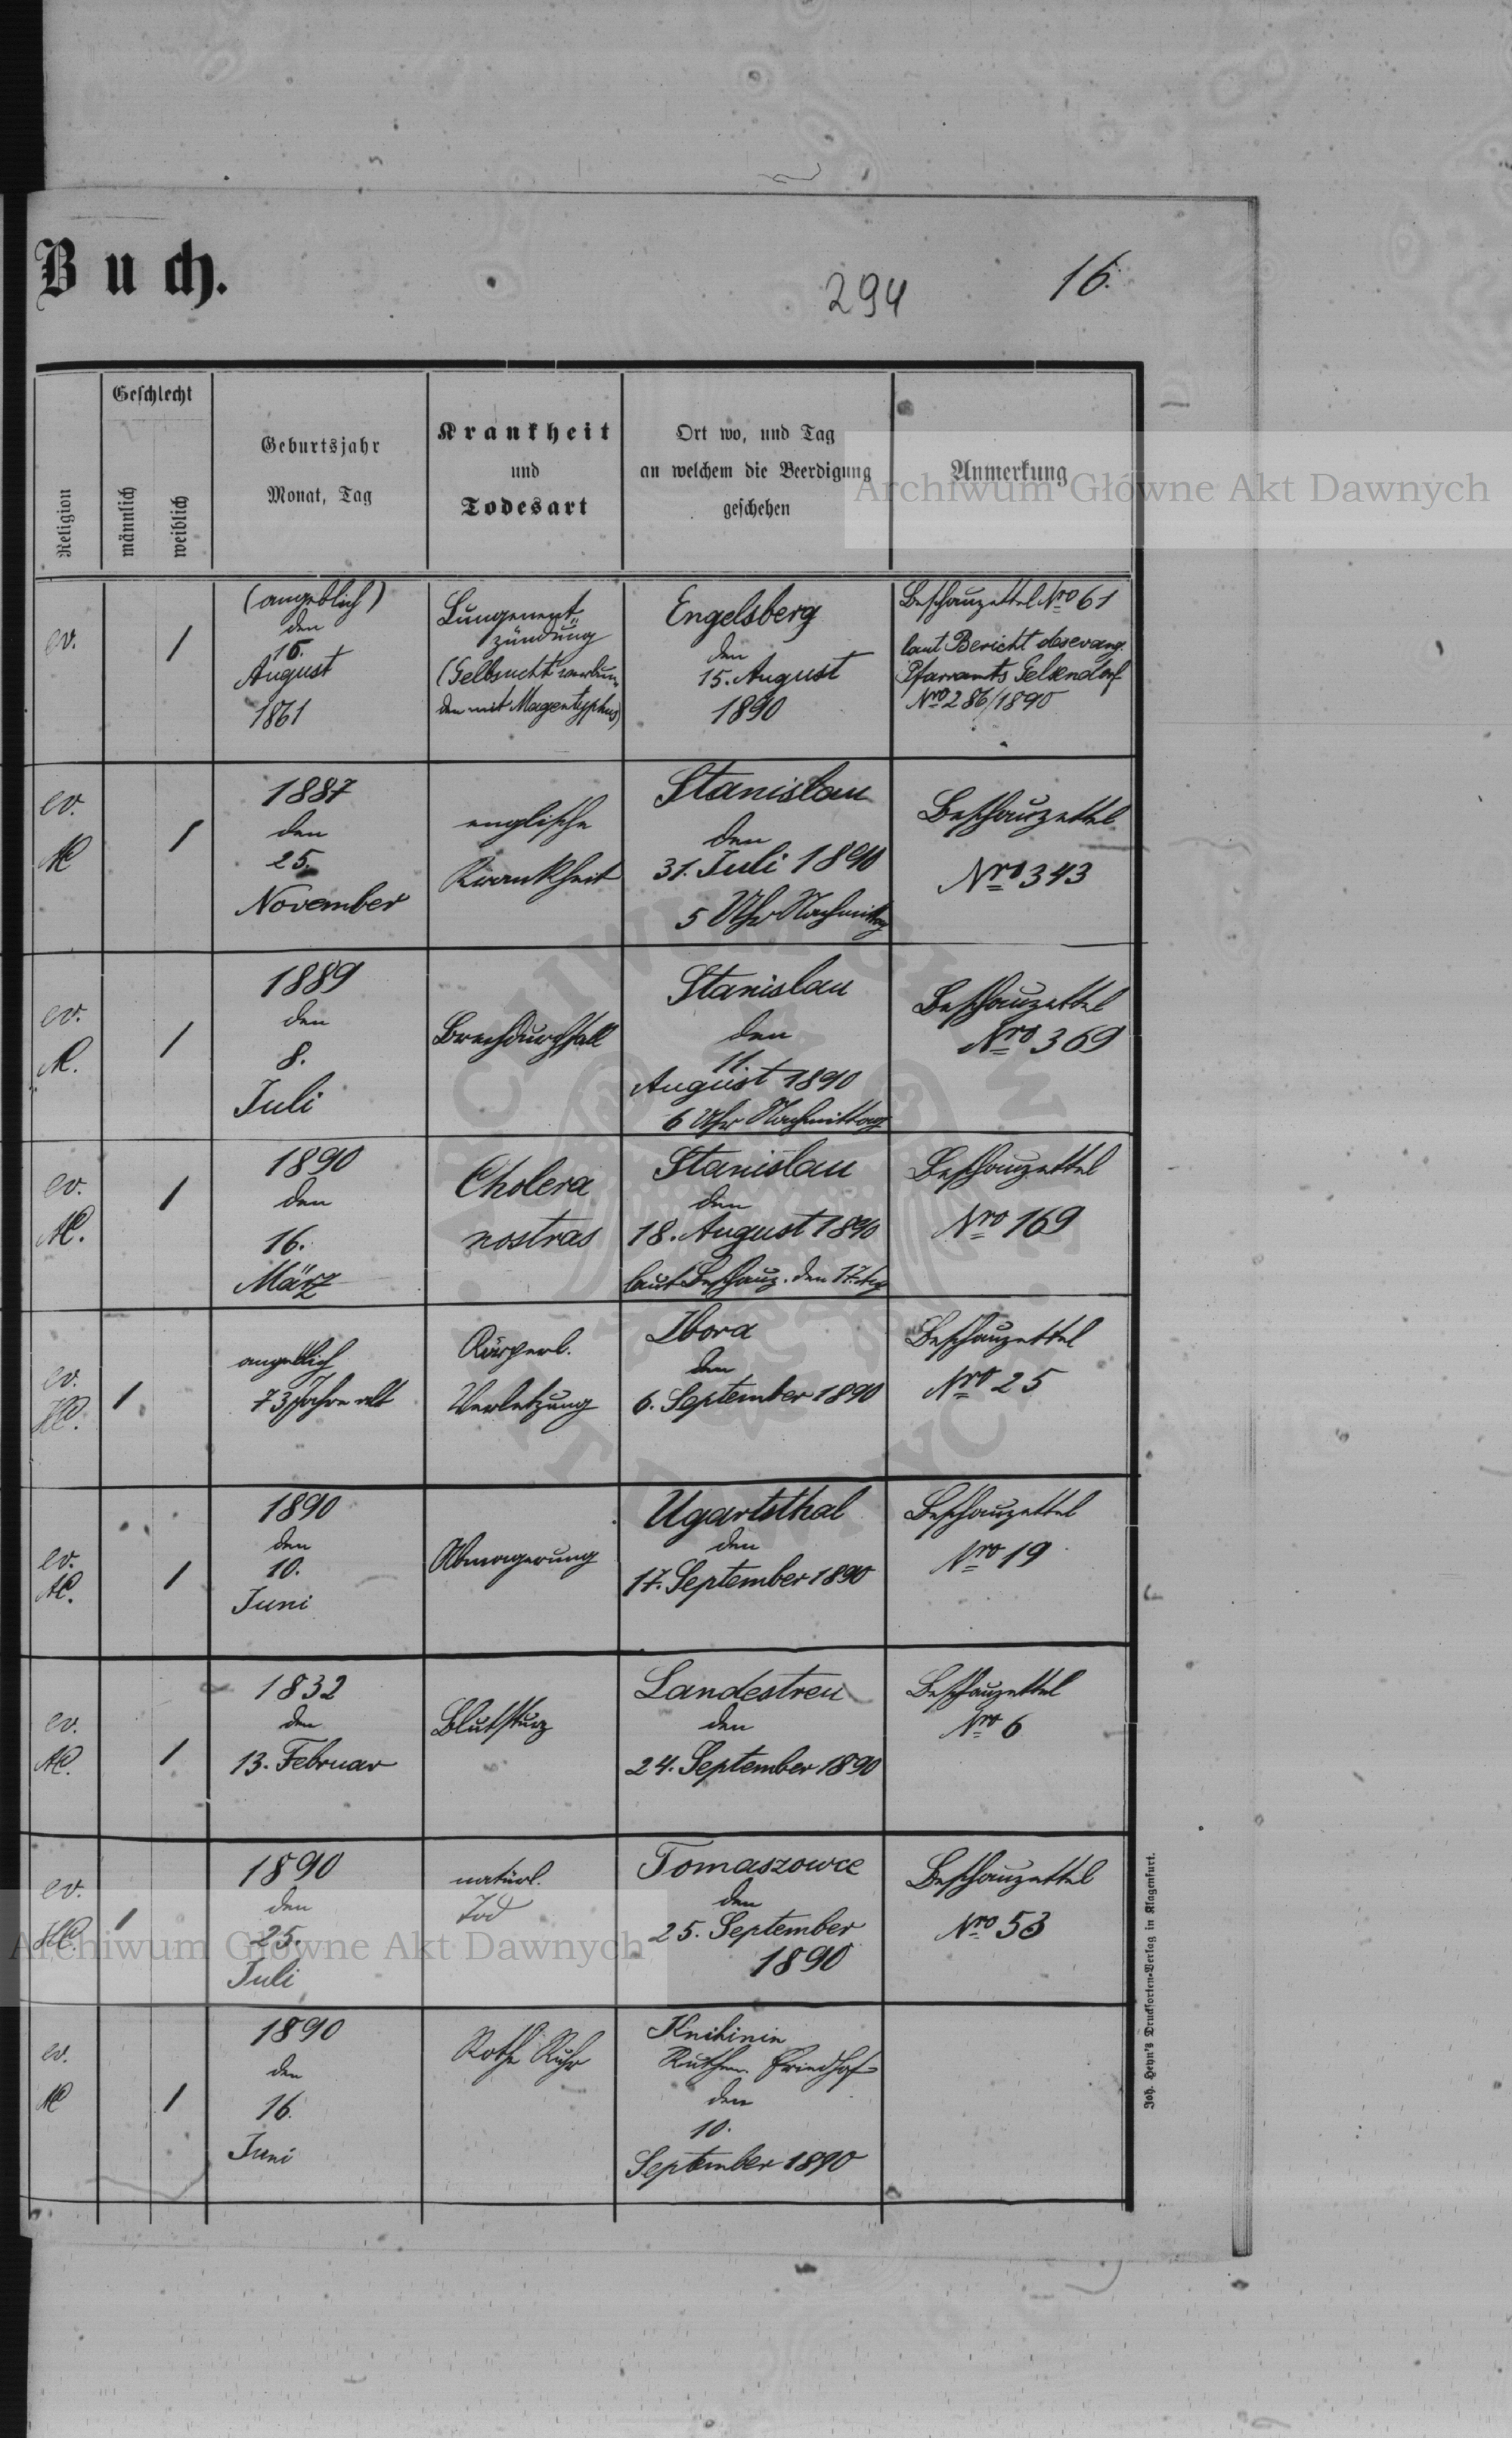 Buch.
294
16.
Geschlecht
Religion
männlich
weiblich
Geburtsjahr
Monat, Tag
Krankheit
und
Todesart
Ort wo, und Tag
an welchem die Beerdigung
geschehen
Anmerkung
Archiwum Główne Akt Dawnych
ev.
1
(angeblich)
den
15.
August
1861
Lungenent„
zündung
(Gelbsucht verbun„
den mit Magentyphus)
Engelsberg
den
15. August
1890
Beschauzettel Nro 61
laut Bericht des evang.
Pfarramts Gelsendorf
Nro 286/1890
ev.
AC
1
1887
den
25.
November
englische
Krankheit
Stanislau
den
31. Juli 1890
5 Uhr Nachmittag
Beschauzettel
Nro 343
ev.
AC.
1
1889
den
8.
Juli
Brechdurchfall
Stanislau
den
11.
August 1890
6 Uhr Nachmittag
Beschauzettel
Nro 369
ev.
AC.
1
1890
den
16.
März
Cholera
nostras
Stanislau
den
18. August 1890
laut Beschauz. den 17. Aug
Beschauzettel
Nro 169
ev.
HC.
1
angeblich
73 Jahre alt
Körperl.
Verletzung
Zbora
den
6. September 1890
Beschauzettel
Nro 25
ev.
AC.
1
1890
den
10.
Juni
Abmagerung
Ugartsthal
den
17. September 1890
Beschauzettel
Nro 19
ev.
AC.
1
1832
den
13. Februar
Blutsturz
Landestreu
den
24. September 1890
Beschauzettel
Nro 6
ev.
HC.
1
1890
den
25.
Juli
natürl.
Tod
Tomaszowce
den
25. September
1890
Beschauzettel
Nro 53
Archiwum Główne Akt Dawnych
ev.
AC
1
1890
den
16.
Juni
Rothe Ruhr
Knihinin
Ruthen. Friedhof
den
10.
September 1890
Joh. Heyn's Drucksorten-Verlag in Klagenfurt.